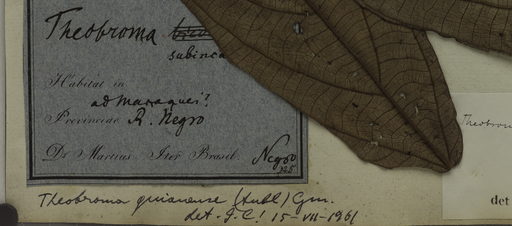 Theobroma
subinca
Habitat in
ad Maraquei?
Provinciae R. Negro
Dr Martius Iter Brasil. Negro
Theobroma guianense (Aubl) Gm.
det. J.C! 15-VII-1961
Theobrom
det